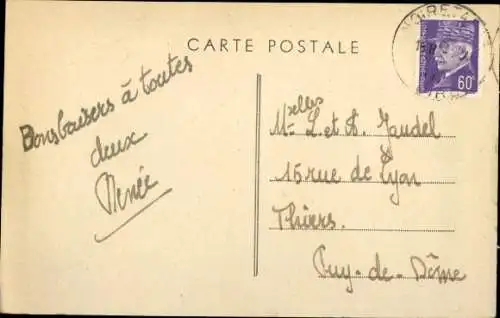 CARTE POSTALE
NOIRETA
60c
Bons baisers à toutes
deux
Renée
Melles L. et A. Jaudel
15 rue de Lyon
Thiers.
Puy-de-Dôme